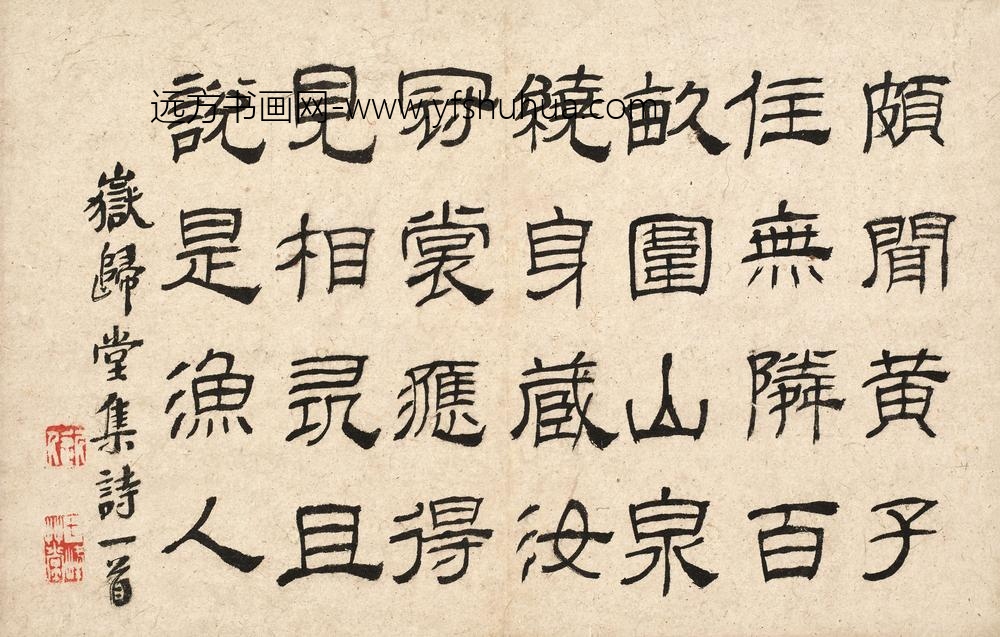 頗聞黄子
住無隣百
畝圍山泉
繞身藏汝
冠裳應得
見相尋且
說是漁人
嶽歸堂集詩一首
远方书画网-www.yfshuhua.com